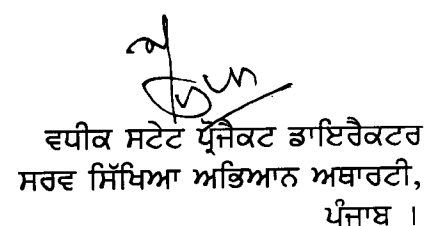 ਵਧੀਕ ਸਟੇਟ ਪ੍ਰੋਜੈਕਟ ਡਾਇਰੈਕਟਰ
ਸਰਵ ਸਿੱਖਿਆ ਅਭਿਆਨ ਅਥਾਰਟੀ,
ਪੰਜਾਬ ।